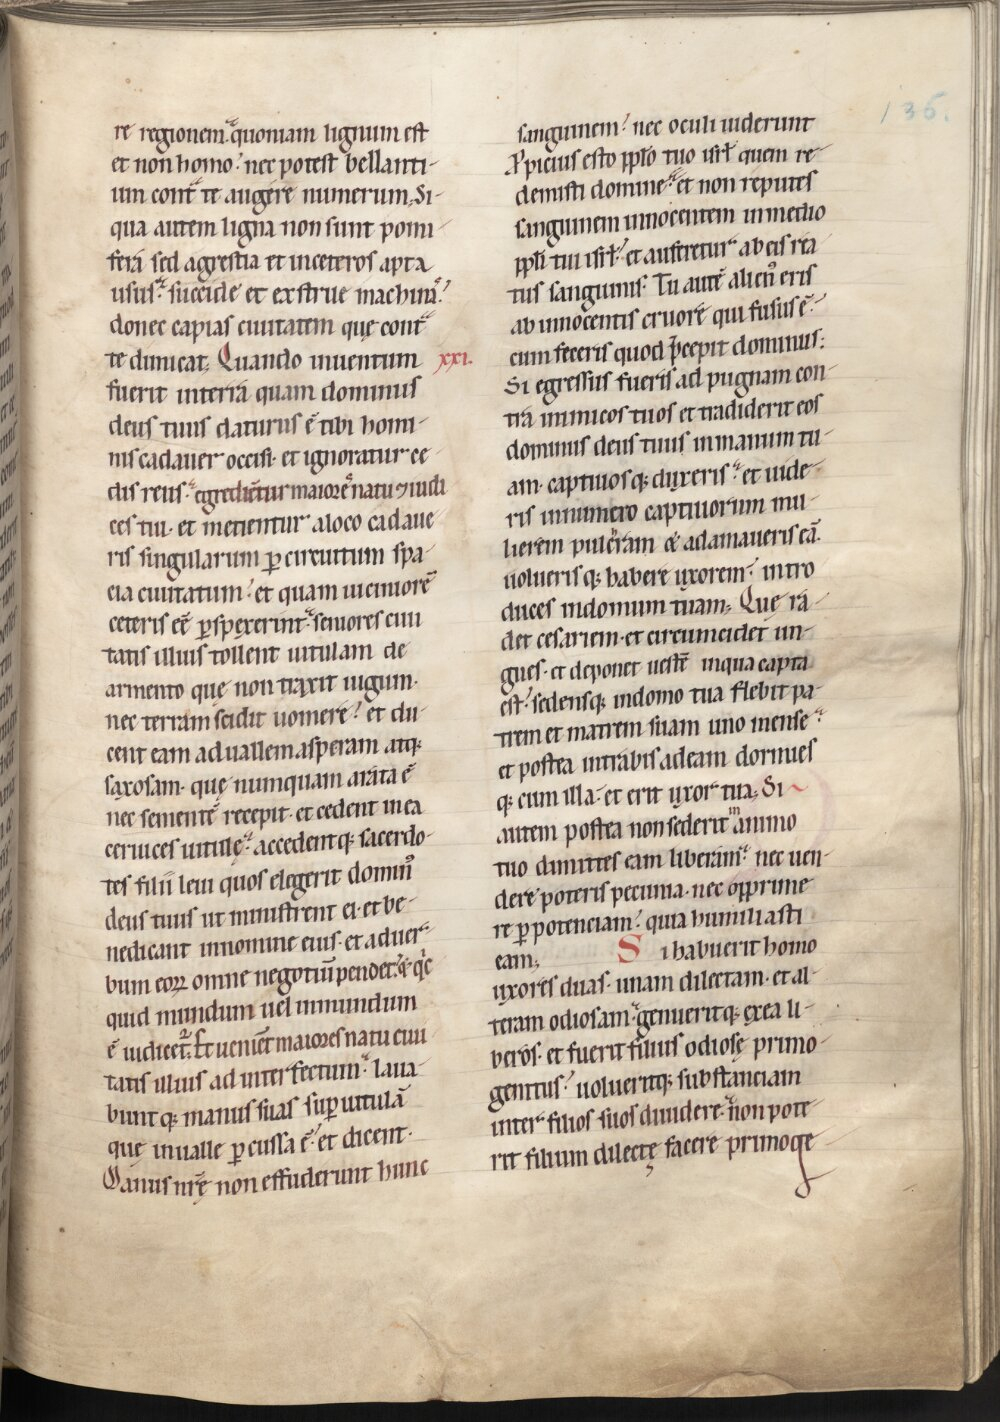 136.
re regionem. quoniam lignum est
et non homo. nec potest bellanti-
um cont̄ te augere numerum. Si-
qua autem ligna non sunt pomi-
fera sed agrestia et inceteros apta
usus. succide et exstrue machinā.
donec capias ciuitatem quę cont̄
te dimicat; Quando inuentum xxi.
fuerit interra quam dominus
deus tuus daturus ē tibi homi-
nis cadauer occisi. et ignoratur ce-
dis reus. egrediētur maiorē natu ⁊ iudi
ces tui. et metientur aloco cadaue-
ris singularum ꝑ circuitum spa-
cia ciuitatum. et quam uiciniorē
ceteris eē ꝑspexerint. seniores ciui
tatis illius tollent uitulam de
armento quę non traxit iugum.
nec terram scidit uomere. et du-
cent eam aduallem asperam atq;
saxosam. quę numquam arata ē
nec sementē recepit. et cedent in ea
ceruices uitulę. accedentq; sacerdo-
tes filii leui quos elegerit domin᷒
deus tuus ut ministrent ei. et be-
nedicant innomine eius. et aduer-
bum eoꝝ omne negotiū pendet. & qͥc
quid mundum uel inmundum
ē iudicet᷑. Et ueniēt maiores natu ciui
tatis illius ad interfectum. laua-
bunt q; manus suas suꝑ uitulā
quę inualle ꝑcussa ē. et dicent.
Manus nrē non effuderunt hunc
sanguinem. nec oculi uiderunt
Ꝓpicius esto ppl̄o tuo isrl̄ quem re-
demisti domine. et non reputes
sanguinem innocentem inmedio
ppl̄i tui isrl̄. et auferetur ab eis rea-
tus sanguinis. Tu autē alien᷒ eris
ab innocentis cruore qui fusus ē.
cum feceris quod p̄cepit dominus;
Si egressus fueris ad pugnam con-
tra inimicos tuos et tradiderit eos
dominus deus tuus inmanum tu-
am. captiuos q; duxeris. et uide-
ris innumero captiuorum mu-
lierem pulcram & adamaueris eā.
uolueris q; habere uxorem. intro
duces indomum tuam; Quę ra-
det cesariem. et circumcidet un-
gues. et deponet uestē inqua capta
est. sedensq; indomo tua flebit pa-
trem et matrem suam uno mense.
et postea intrabis adeam dormies
q; cum illa. et erit uxor tua; Si
autem postea non sederit animo
tuo dimittes eam liberam. nec uen-
dere poteris pecunia. nec opprime-
re ꝑ potenciam. quia humiliasti
eam; Si habuerit homo
uxores duas. unam dilectam. et al-
teram odiosam. genueritq; exea li-
beros. et fuerit filius odiosę primo-
genitus. uolueritq; substanciam
inter filios suos diuidere. non pote-
rit filium dilectę facere primoge